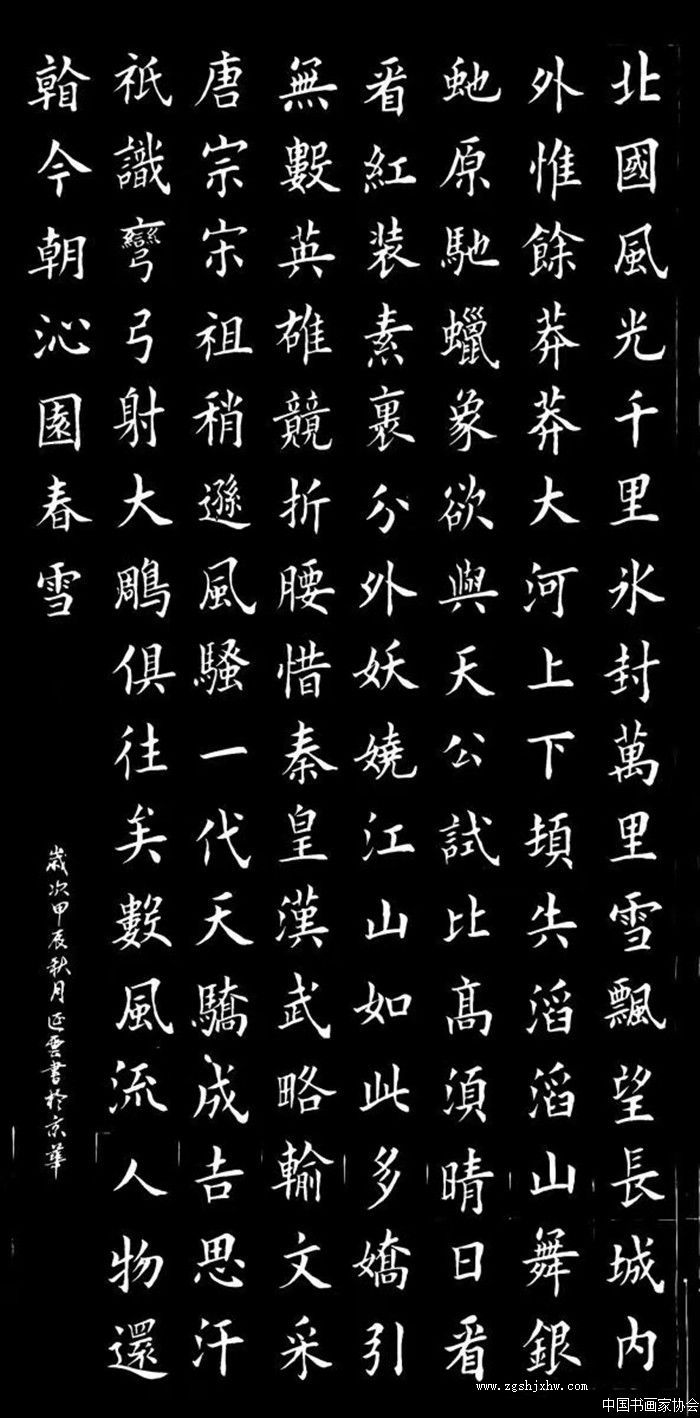 北國風光千里氷封萬里雪飄望長城内
外惟餘莽莽大河上下頓失滔滔山舞銀
虵原馳蠟象欲與天公試比髙須晴日看
看紅装素裹分外妖嬈江山如此多嬌引
無數英雄競折腰惜秦皇漢武略輸文采
唐宗宋祖稍遜風騷一代天驕成吉思汗
祇識彎弓射大鵰俱往矣數風流人物還
今朝沁園春雪
歲次甲辰秋月延雲書於京華
www.zgshjxhw.com
中国书画家协会